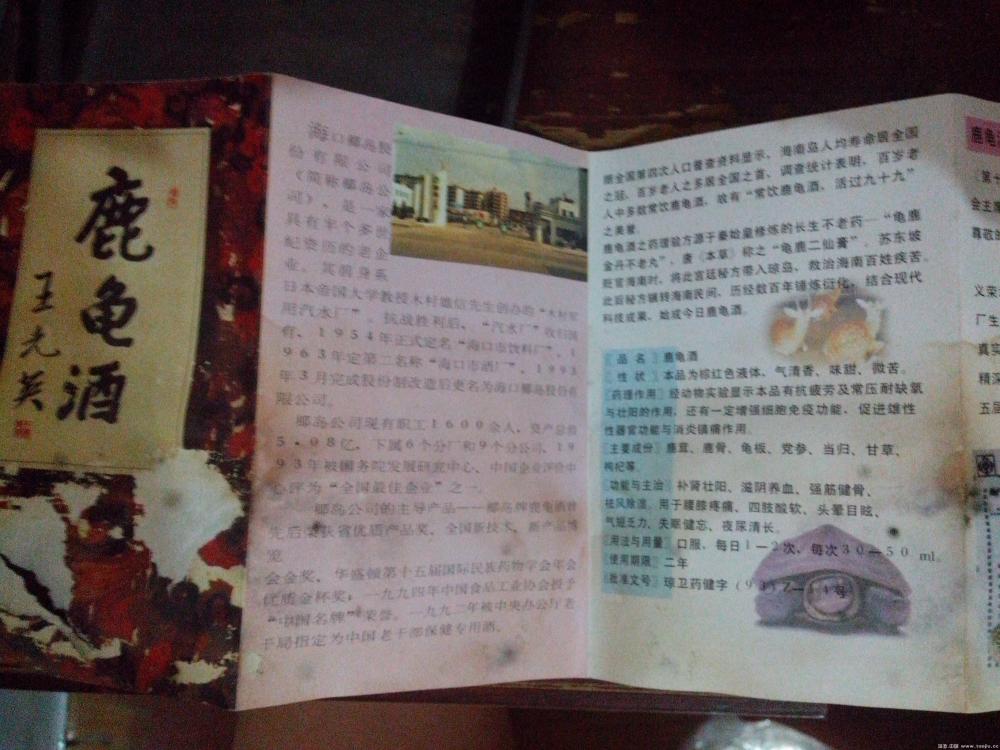 鹿龟酒
王光英
海口椰岛股
份有限公司
(简称椰岛公
司),是一家
具有半个多世
纪资历的老企
业。其前身系
日本帝国大学教授木村雄信先生创办的“木村军
用汽水厂”。抗战胜利后,“汽水厂”收归国
有,1954年正式定名“海口市饮料厂”,1
963年定第二名称“海口市酒厂”。1993
年3月完成股份制改造后更名为海口椰岛股份有
限公司。
椰岛公司现有职工1600余人,资产总值
5.08亿,下属6个分厂和9个分公司,19
93年被国务院发展研究中心、中国企业评价中
心评为“全国最佳企业”之一。
椰岛公司的主导产品——椰岛牌鹿龟酒曾
先后荣获省优质产品奖、全国新技术、新产品博
览
会金奖、华盛顿第十五届国际民族药物学会年会
优质金杯奖;一九九四年中国食品工业协会授予
“中国名牌”荣誉。一九九二年被中央办公厅老
干局指定为中国老干部保健专用酒。
据全国第四次人口普查资料显示,海南岛人均寿命居全国
之冠,百岁老人之多居全国之首,调查统计表明,百岁老
人中多数常饮鹿龟酒,故有“常饮鹿龟酒,活过九十九”
之美誉。
鹿龟酒之药理验方源于秦始皇修炼的长生不老药—“龟鹿
金丹不老丸”,唐《本草》称之“龟鹿二仙膏”。苏东坡
贬官海南时,将此宫廷秘方带入琼岛,救治海南百姓疾苦。
此后秘方辗转海南民间,历经数百年锤炼衍化,结合现代
科技成果,始成今日鹿龟酒。
〖品 名〗鹿龟酒
〖性 状〗本品为棕红色液体,气清香、味甜、微苦。
〖药理作用〗经动物实验显示本品有抗疲劳及常压耐缺氧
与壮阳的作用,还有一定增强细胞免疫功能,促进雄性
性器官功能与消炎镇痛作用。
〖主要成份〗鹿茸、鹿骨、龟板、党参、当归、甘草、
枸杞等。
〖功能与主治〗补肾壮阳、滋阴养血、强筋健骨、
祛风除湿。用于腰膝疼痛、四肢酸软、头晕目眩、
气短乏力、失眠健忘、夜尿清长。
〖用法与用量〗口服,每日1—2次,每次30—50 ml。
〖使用期限〗二年
〖批准文号〗琼卫药健字
鹿龟
〖第十
会主席
尊敬的
义荣
厂生
真实
精深
五届